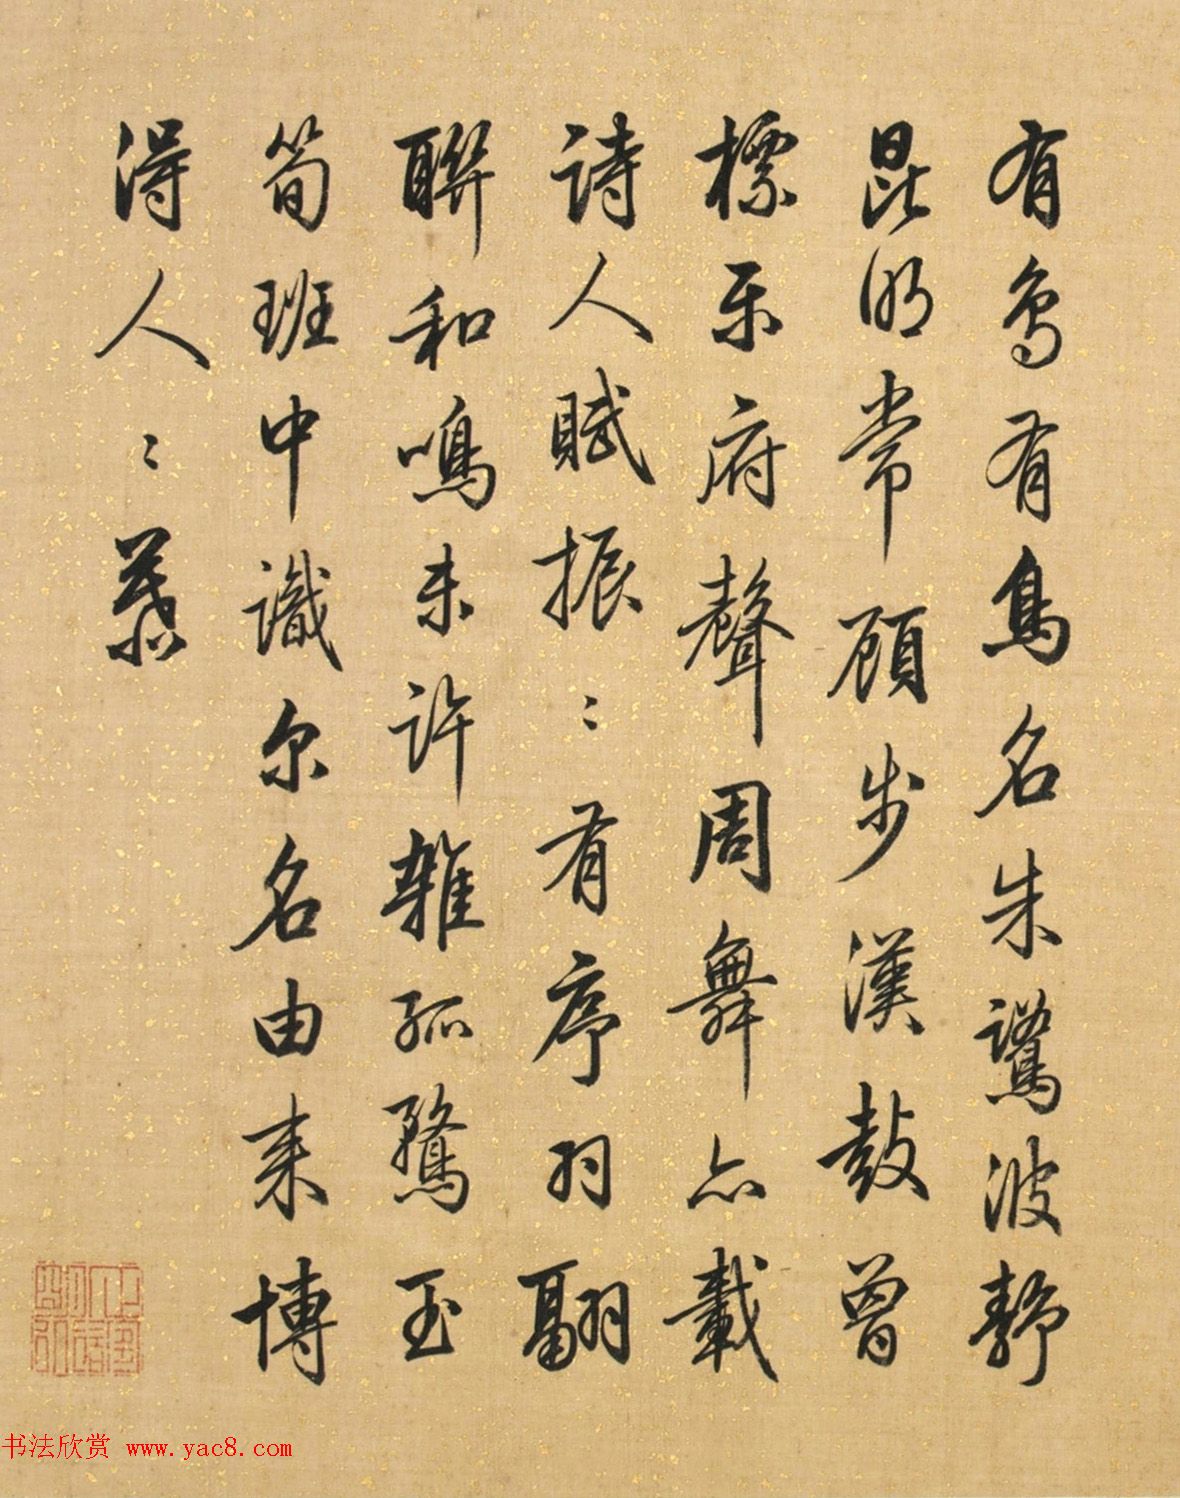 有鳥有鳥名朱鷺波靜
昆明常顧步漢鼓曾
標乐府聲周舞亦載
詩人賦振〻有序羽翮
聯和鳴未許雜孤鶩玉
筍班中識尔名由来博
得人〻慕
书法欣赏 www.yac8.com